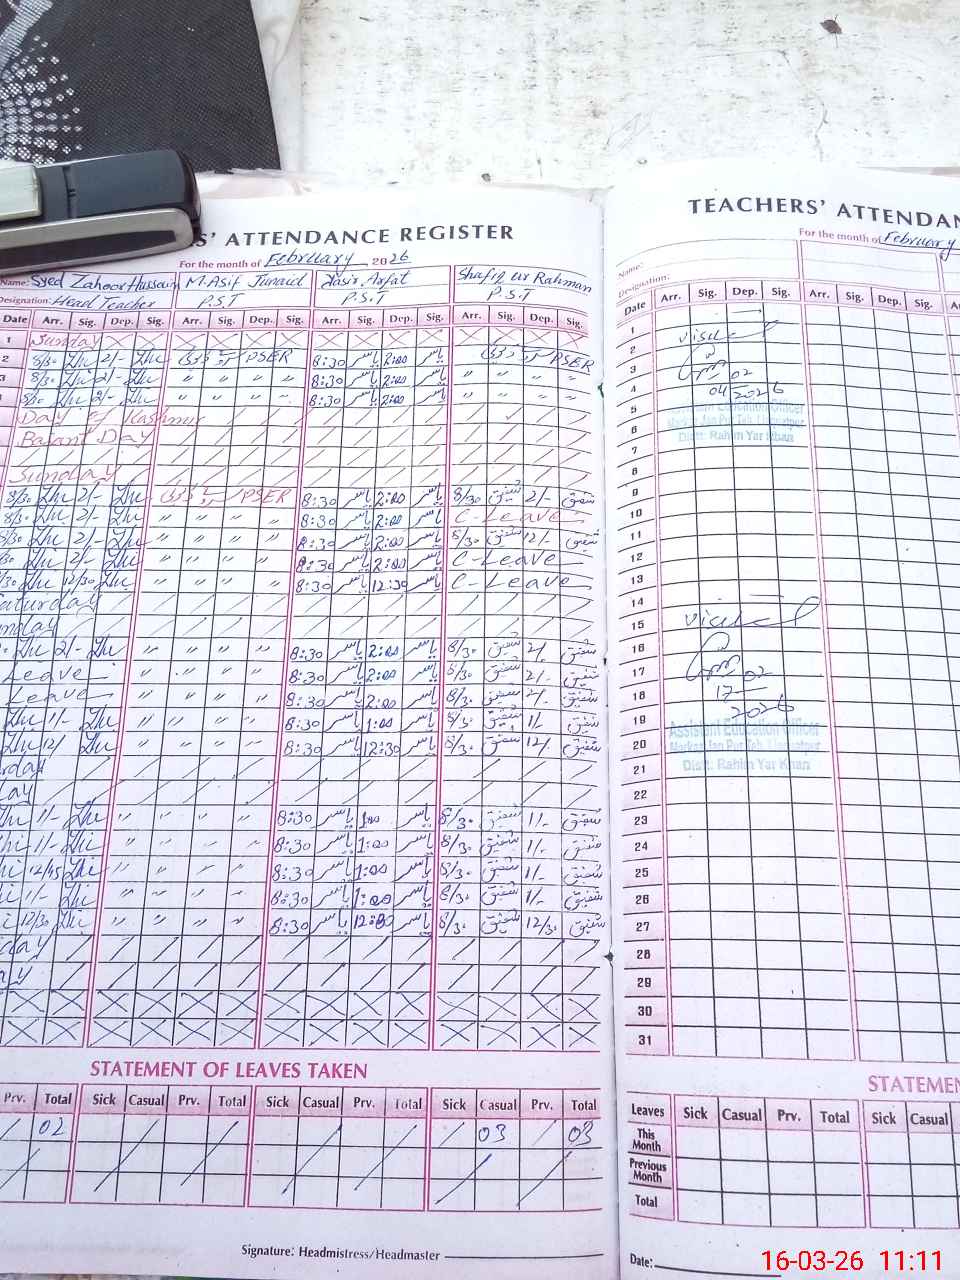 S' ATTENDANCE REGISTER
For the month of February 2026
Name: Syed Zahoor Hussain M. Asif Junaid Yasir Arfat Shafiq ur Rahman
Designation: Head Teacher P.S.T P.S.T P.S.T
Date Arr. Sig. Dep. Sig. Arr. Sig. Dep. Sig. Arr. Sig. Dep. Sig. Arr. Sig. Dep. Sig.
1 Sunday
2 8/30 2/- PSER 8:30 یاسر 2:00 یاسر PSER
3 8/30 2/- " " " " 8:30 یاسر 2:00 یاسر " " " "
8/30 2/- " " " " 8:30 یاسر 2:00 یاسر " " " "
Day of Kashmir
Basant Day
Sunday
8/30 2/- PSER 8:30 یاسر 2:00 یاسر 8/30 شفیق 2/- شفیق
8/30 2/- " " " " 8:30 یاسر 2:00 یاسر C-Leave
8/30 2/- " " " " 8:30 یاسر 2:00 یاسر 8/30 شفیق 12/- شفیق
/30 2/- " " " " 8:30 یاسر 2:00 یاسر C-Leave
/30 12/30 " " " " 8:30 یاسر 12:30 یاسر C-Leave
aturday
nday
2/- " " " " 8:30 یاسر 2:00 یاسر 8/30 شفیق 2/- شفیق
Leave " " " " 8:30 یاسر 2:00 یاسر 8/30 شفیق 2/- شفیق
Leave " " " " 8:30 یاسر 2:00 یاسر 8/30 شفیق 2/- شفیق
1/- " " " " 8:30 یاسر 1:00 یاسر 8/30 شفیق 1/- شفیق
12/ " " " " 8:30 یاسر 12:30 یاسر 8/30 شفیق 12/- شفیق
rday
ay
1/- " " " " 8:30 یاسر 1:00 یاسر 8/30 شفیق 1/- شفیق
1/- " " " " 8:30 یاسر 1:00 یاسر 8/30 شفیق 1/- شفیق
12/45 " " " " 8:30 یاسر 1:00 یاسر 8/30 شفیق 1/- شفیق
1/- " " " " 8:30 یاسر 1:00 یاسر 8/30 شفیق 1/- شفیق
12/30 " " " " 8:30 یاسر 12:00 یاسر 8/30 شفیق 12/30 شفیق
day
ay
STATEMENT OF LEAVES TAKEN
Prv. Total Sick Casual Prv. Total Sick Casual Prv. Total Sick Casual Prv. Total
02 03 03
Signature: Headmistress/Headmaster
TEACHERS' ATTENDAN
For the month of February
Name:
Designation:
Date Arr. Sig. Dep. Sig. Arr. Sig. Dep. Sig.
1
2 Visited
3
4 02
5 04 2026
Assistant Education Officer
6 Markaz Jan Pur Teh. Liaquatpur
Distt: Rahim Yar Khan
7
8
9
10
11
12
13
14
15 Visited
16
17 02
18 17
19 2026
Assistant Education Officer
20 Markaz Jan Pur Teh. Liaquatpur
21 Distt: Rahim Yar Khan
22
23
24
25
26
27
28
29
30
31
STATEMEN
Leaves Sick Casual Prv. Total Sick Casual
This Month
Previous Month
Total
Date:
16-03-26 11:11